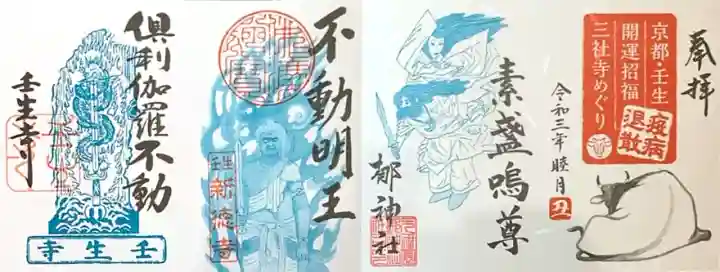 倶利伽羅不動
壬生寺
壬生寺
不動明王
壬生
新徳寺
素盞嗚尊
梛神社
元祇園
奉拝
京都・壬生
開運招福
三社寺めぐり
疫病
退散
令和三年睦月
丑